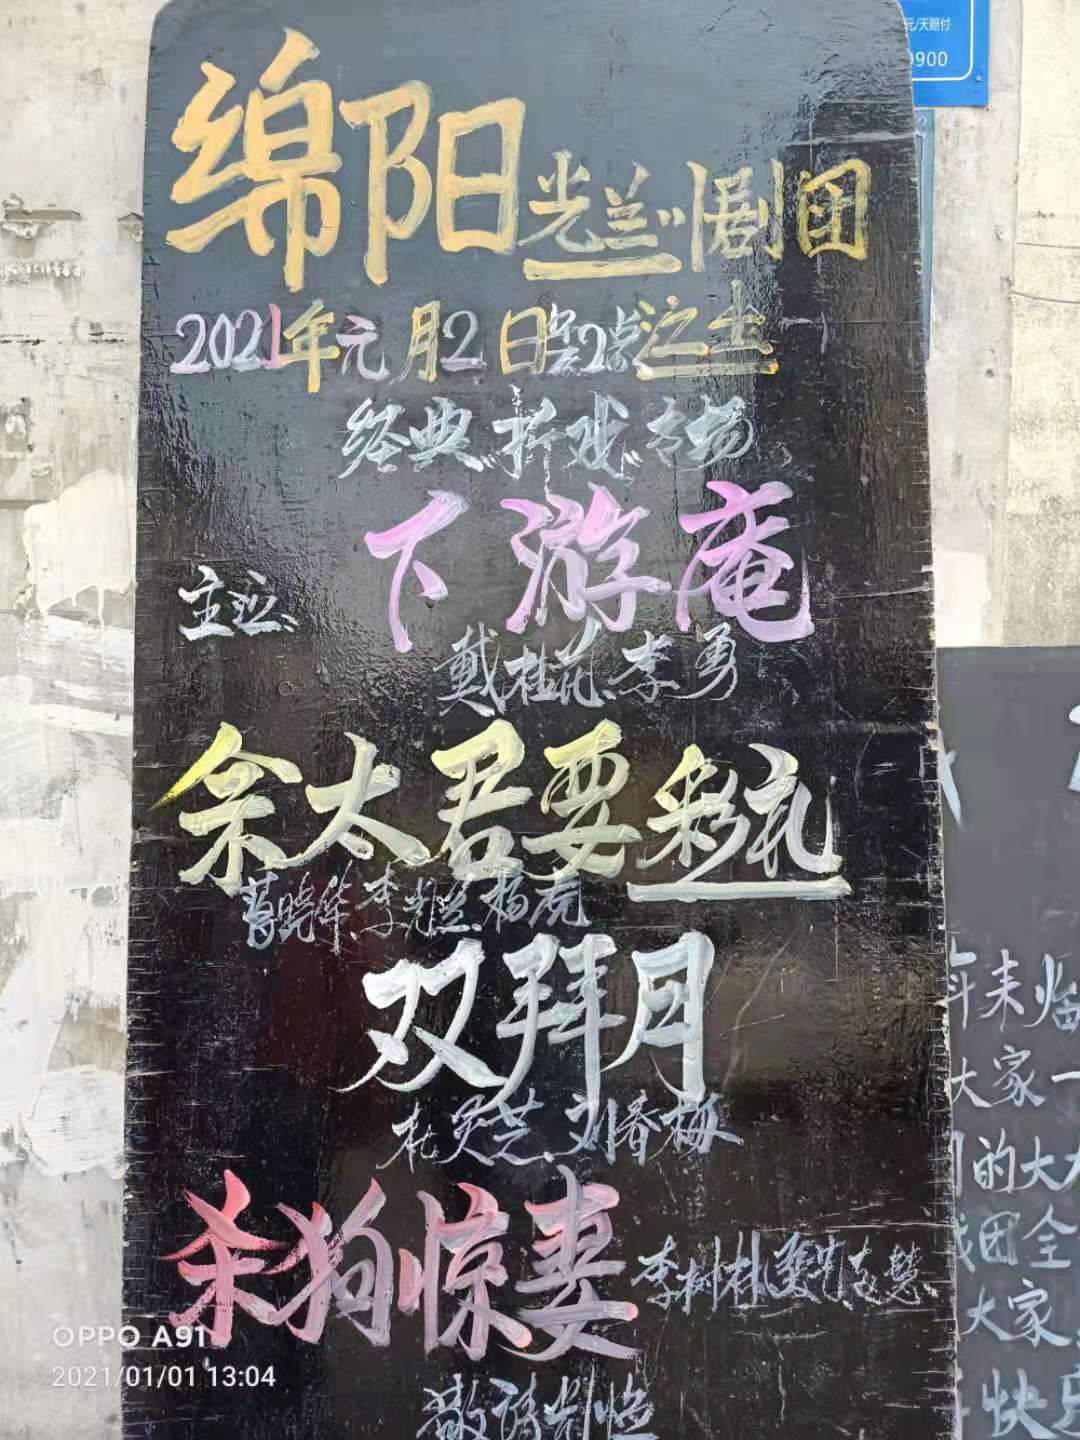 元/天赔付
0900
绵阳光兰川剧团
2021年元月2日 2点 注
经典折戏专场
下游庵
主演
戴桂花、李勇
佘太君要彩礼
蒋晓华、李光兰、杨虎
双拜月
杜灵芝、刘春梅
杀狗惊妻
李树林 慧
敬请光临
来临
大家一
的大
团全
大家
快乐
OPPO A91
2021/01/01 13:04